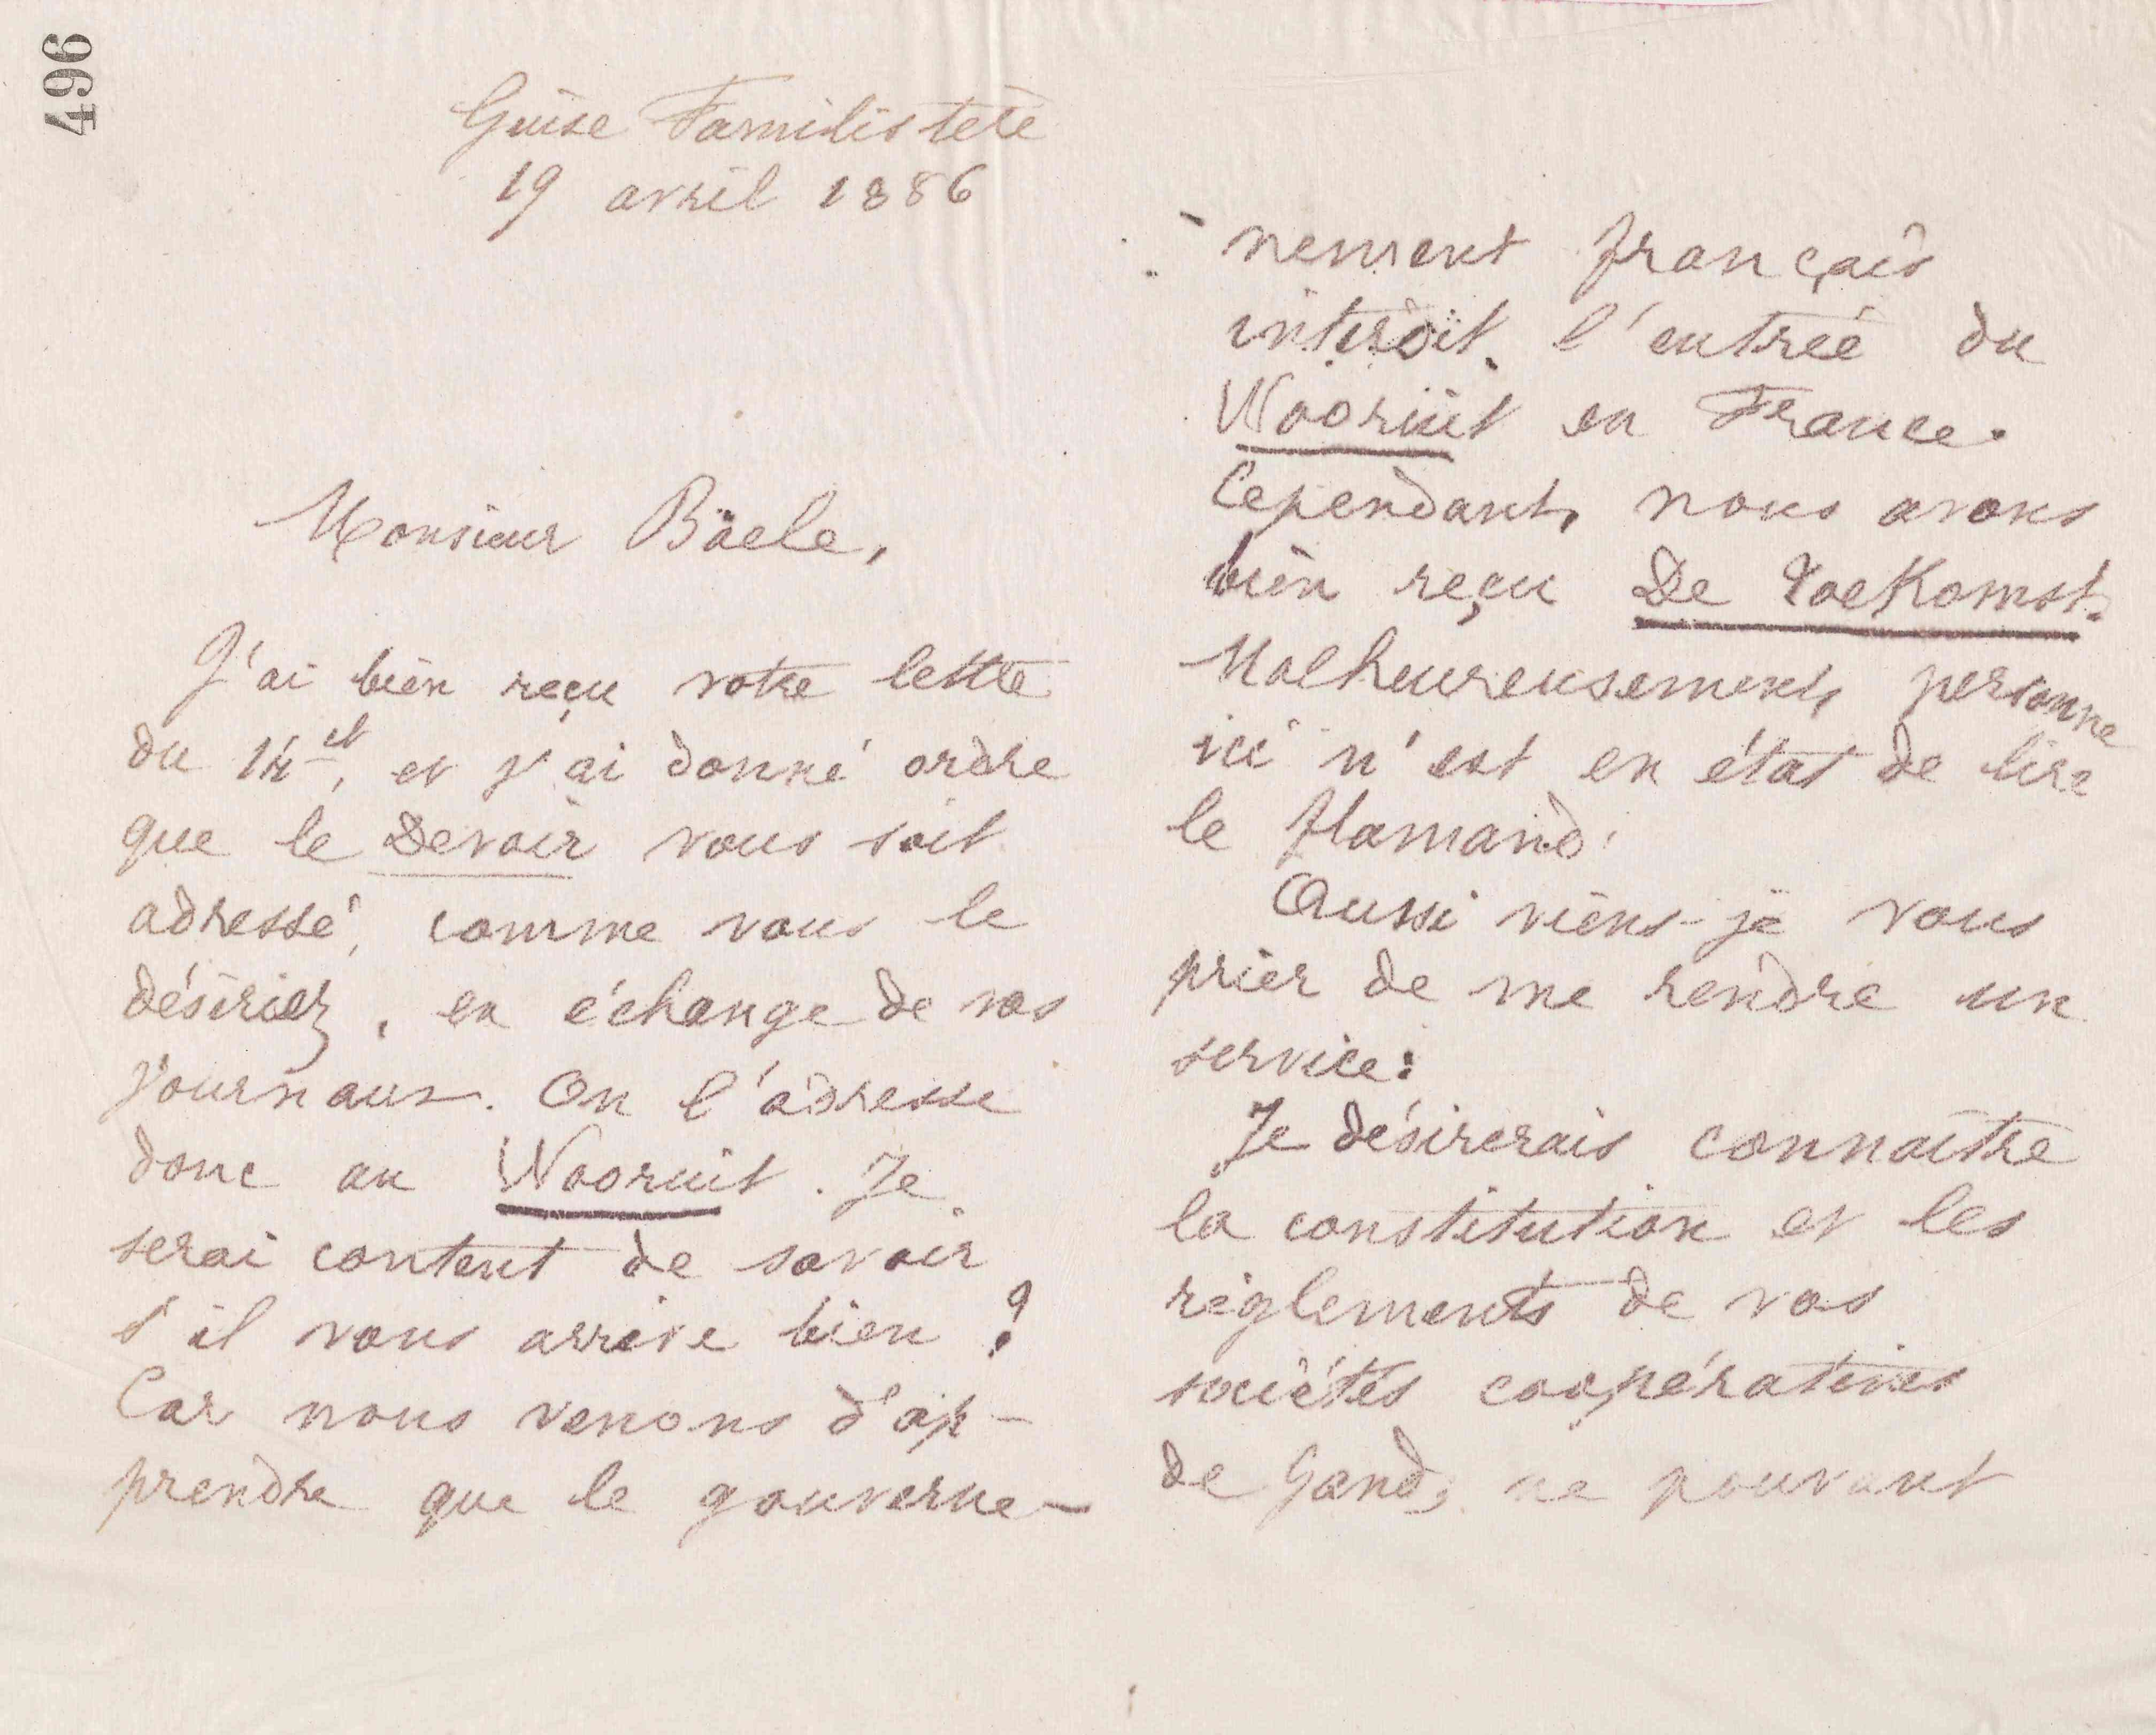 496
Guise Familistère
19 avril 1886
Monsieur Bäele,
J'ai bien reçu votre lettre
du 14 ct, et j'ai donné ordre
que le Devoir vous soit
adressé, comme vous le
désiriez, en échange de vos
journaux. On l'adresse
donc au Wooruit. Je
serai content de savoir
s'il vous arrive bien ?
Car nous venons d'ap-
prendre que le gouverne-
nement français
interdit l'entrée du
Wooruit en France.
Cependant, nous avons
bien reçu De Toekomst.
Malheureusement, personne
ici n'est en état de lire
le flamand.
Aussi viens-je vous
prier de me rendre un
service :
Je désirerais connaître
la constitution et les
règlements de vos
sociétés coopératives
de Gand, ne pouvant